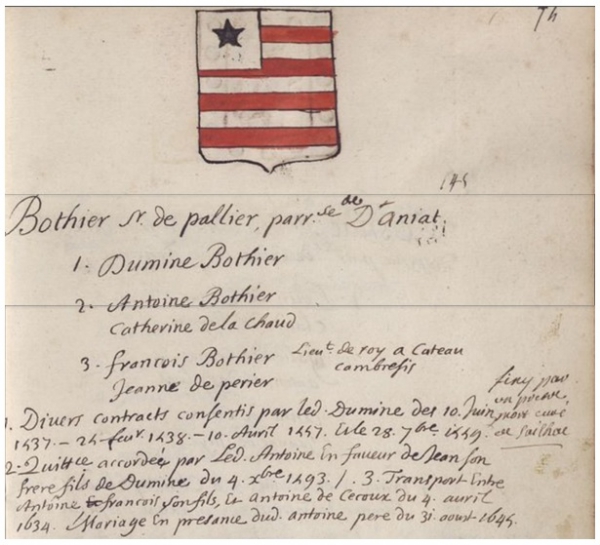 Th
145
Bothier Sr. de pallier, parr.se de D'aniat.
1. Dumine Bothier
2. Antoine Bothier
Catherine de la Chaud
3. francois Bothier Lieut. de roy a Cateau
Jeanne de perier cambresis
1. Divers contracts consentis par led. Dumine des 10. Juin
1537. - 24 feur. 1538. - 10. Avril 1557. Et le 28. 7bre 1559.
2. Quittce accordée par Led. Antoine En faueur de Jean son
frere fils de Dumine du 4. xbre 1593. /. 3. Transport Entre
Antoine francois son fils, Et antoine de Cecoux du 4. avril
1634. Mariage En presance dud. antoine pere du 31. aoust 1645.